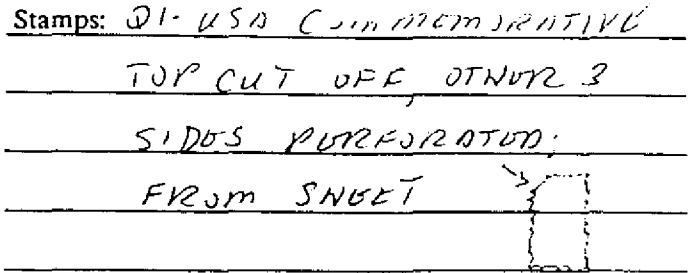 Stamps: Q1- USA COMMEMORATIVE
TOP CUT OFF, OTHER 3
SIDES PERFORATED;
FROM SHEET